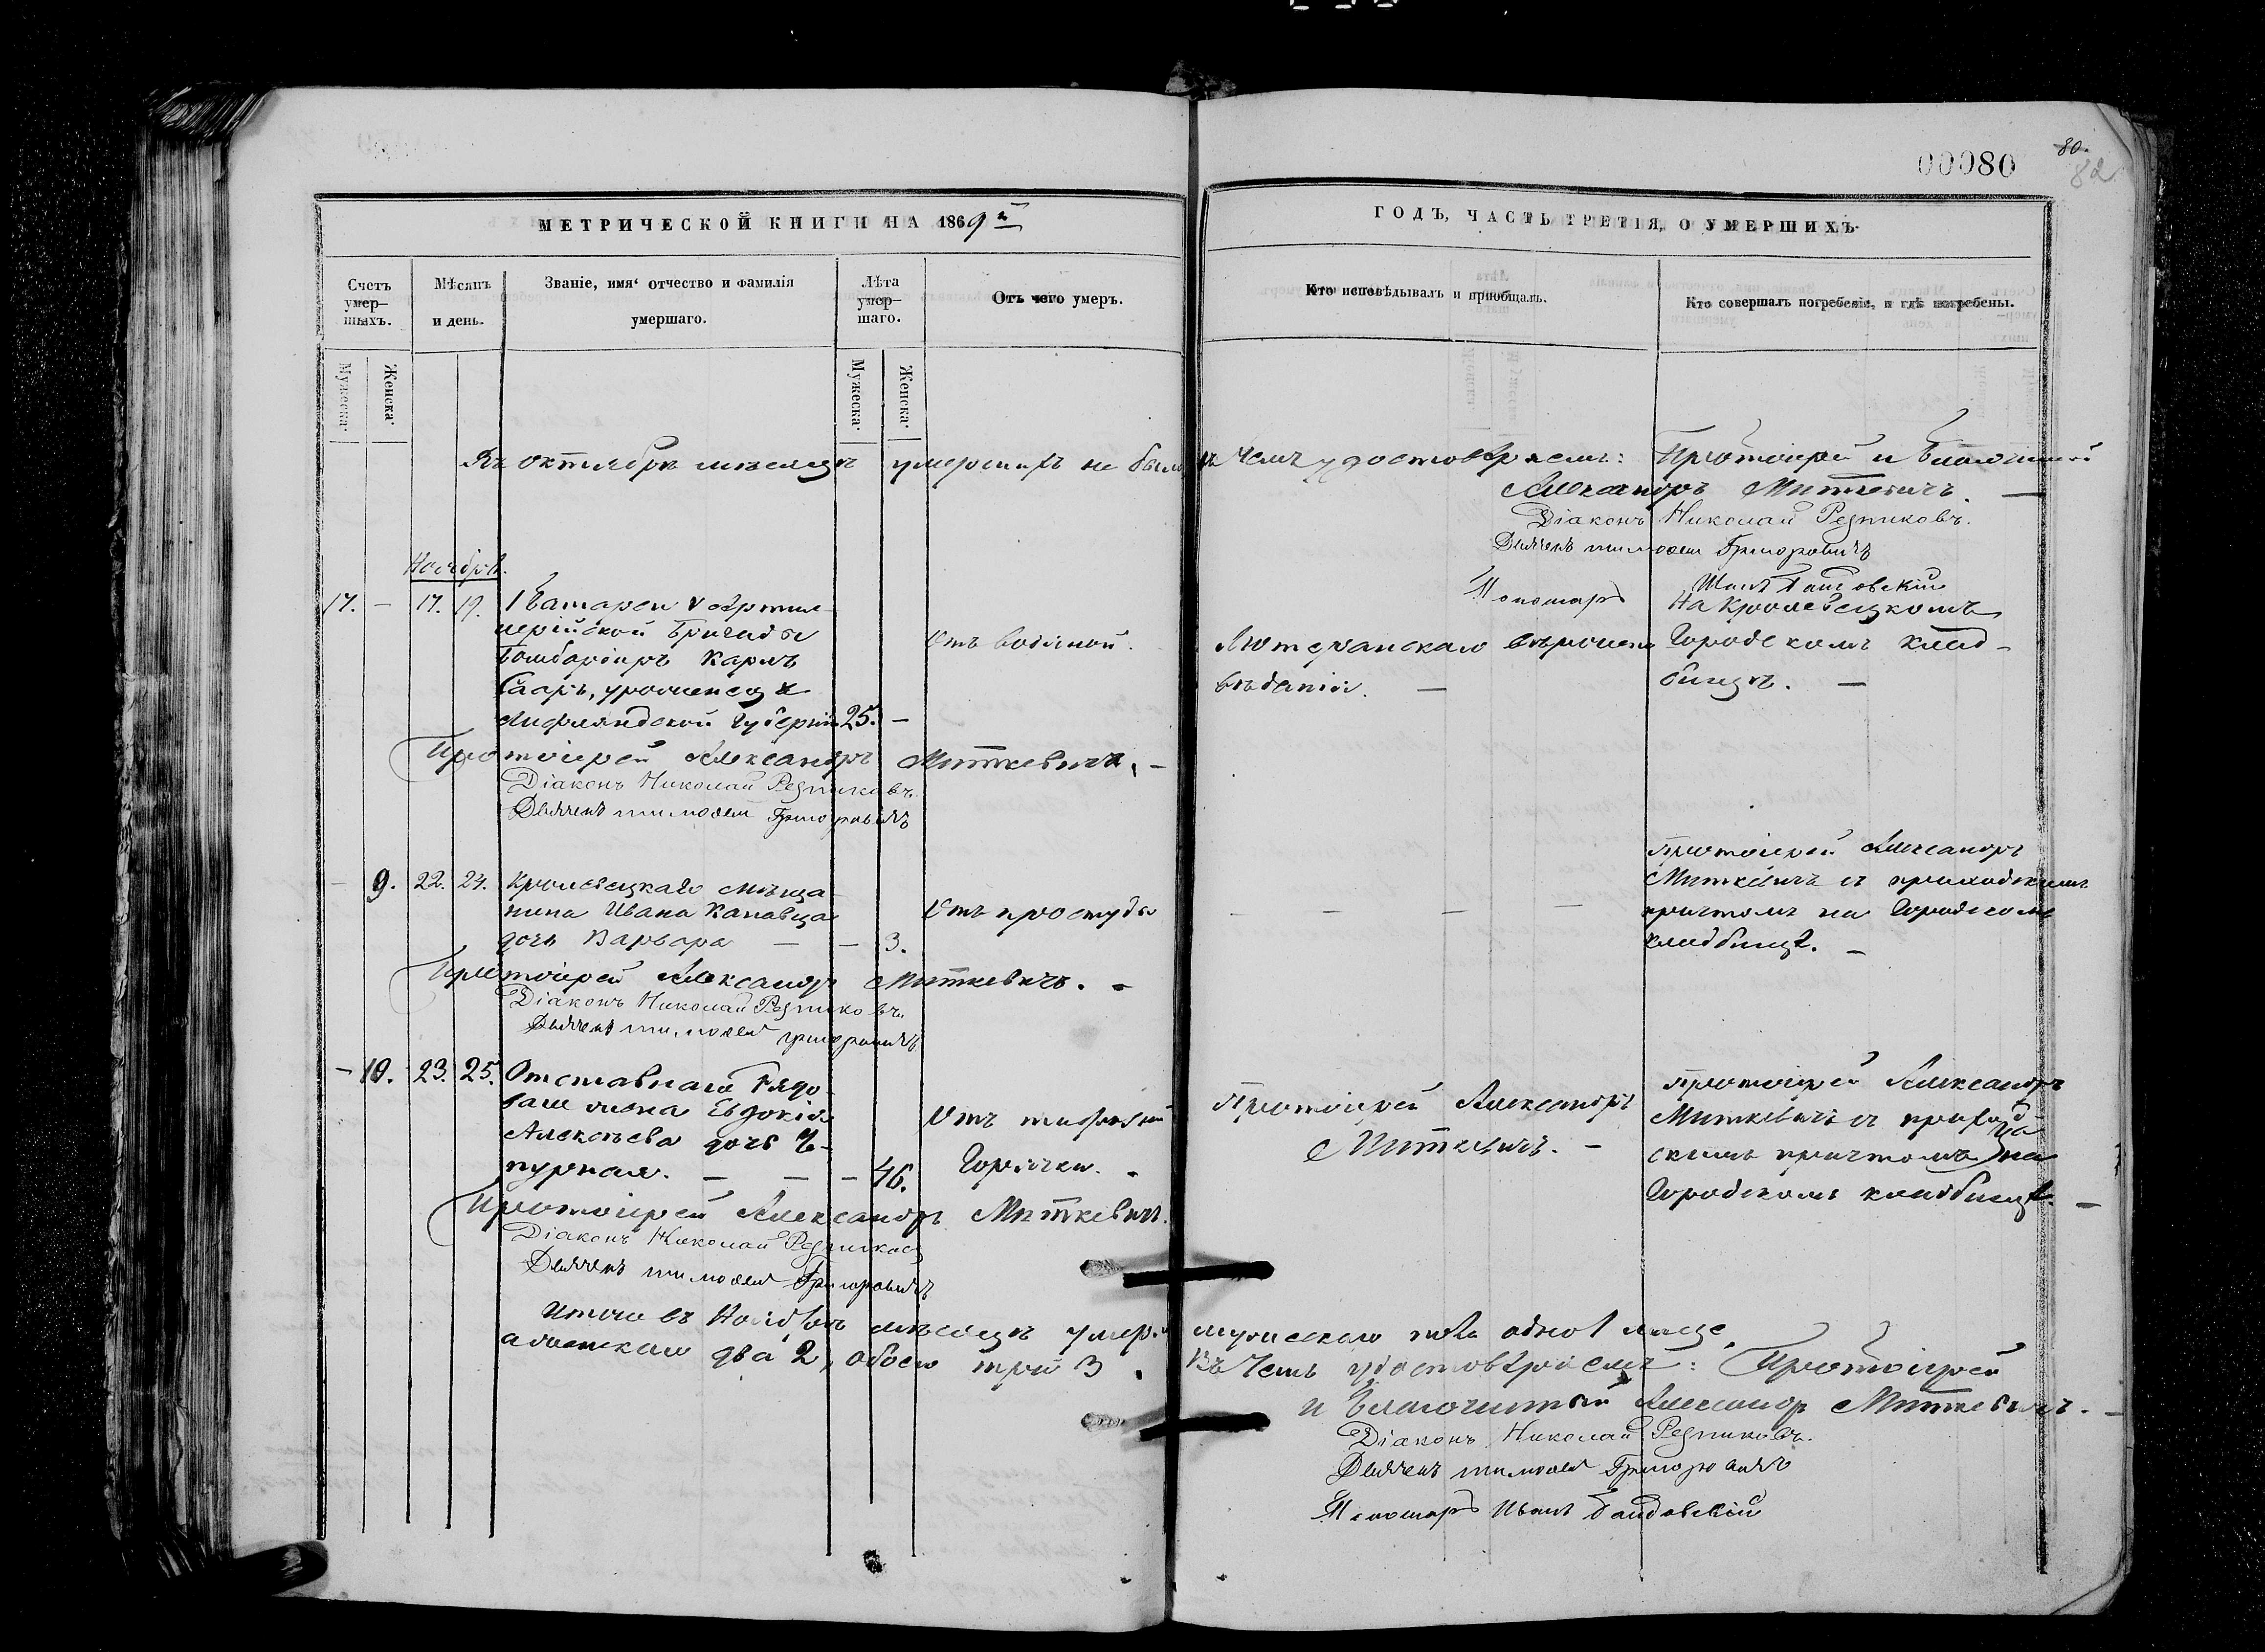 00080
80.
82
МЕТРИЧЕСКОЙ КНИГИ НА 1869й
ГОДЪ, ЧАСТЬ ТРЕТІЯ, О УМЕРШИХЪ.
Счетъ умер-шыхъ.
Мѣсяцъ и день.
Званіе, имя, отчество и фамилія умершаго.
Лѣта умер-шаго.
Отъ чего умеръ.
Кто исповѣдывалъ и пріобщалъ.
Кто совершалъ погребеніе, и гдѣ погребены.
Мужеска.
Женска.
Мужеска.
Женска.
Въ октябрѣ мѣсяцѣ умершихъ не было въ чемъ удостовѣряемъ: Протоіерей и Благочинный
Александръ Миткевичъ. —
Діаконъ Николай Резниковъ.
Дьячекъ тимофей Григоровичъ
Пономарь Иванъ
Ноябрь.
17. — 17. 19. 1 Батареи артил-
лерійской Бригады
Бомбардиръ Карлъ
Сааръ, уроженецъ
Лифляндской Губерніи 25. —
Отъ водяной.
Лютеранскаго вѣроиспо
вѣданія. —
На Кролевецкомъ
Городскомъ клад-
бищѣ. —
Протоіерей Александръ Миткевичъ. —
Діаконъ Николай Резниковъ.
Дьячекъ тимофей Григоровичъ
— 9. 22. 24. Кролевецкаго мѣща
нина Ивана Канавца
дочь Варвара — — 3.
Отъ простуды
— — — —
Протоіерей Александръ
Миткевичъ съ приходскимъ
причтомъ на Городскомъ
кладбищѣ. —
Протоіерей Александръ Миткевичъ. —
Діаконъ Николай Резниковъ.
Дьячекъ тимофей григоровичъ
— 10. 23. 25. Отставнаго Рядо
ваго жена Евдокія
Алексѣева дочь Че-
пурная. — — — 46.
Отъ
Горячки. —
Протоіерей Александръ
Миткевичъ. —
Протоіерей Александръ
Миткевичъ съ приход
скимъ причтомъ на
Городскомъ кладбищѣ. —
Протоіерей Александръ Миткевичъ.
Діаконъ Николай Резниковъ
Дьячекъ тимофей Григоровичъ
Итого въ Ноябрѣ мѣсяцѣ умерло мужескаго пола одно 1 лице,
а женскаго два 2, обоего трои 3. Въ чемъ удостовѣряемъ: Протоіерей
и Благочинный Александръ Миткевичъ. —
Діаконъ Николай Резниковъ.
Дьячекъ тимофей Григоровичъ
Пономарь Иванъ